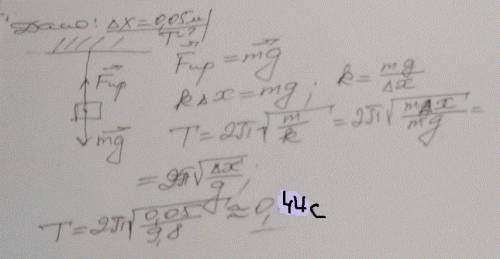 Дано: Δx = 0,05 м
T - ?
F⃗упр = mg⃗
F⃗упр
kΔx = mg; k = mg/Δx
mg⃗
T = 2π√(m/k) = 2π√(mΔx/mg) =
= 2π√(Δx/g);
T = 2π√(0,05/9,8) ≈ 0,44 с